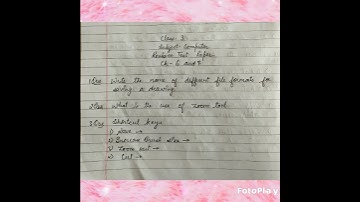 Class 3
Subject Computer
Revision Test Paper
Ch- 6 and 7
1 Que Write the name of different file formats for
saving a drawing
2 Que What is the use of zoom tool
3 Que Shortcut keys
1) Save →
2) Increase Brush Size →
3) Zoom out →
4) Cut →
FotoPlay